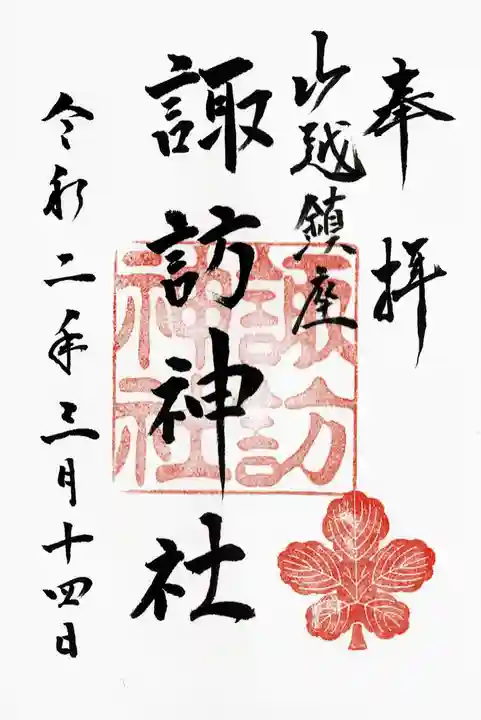 奉拝
山越鎮座
諏訪神社
諏訪
神社
令和二年三月十四日